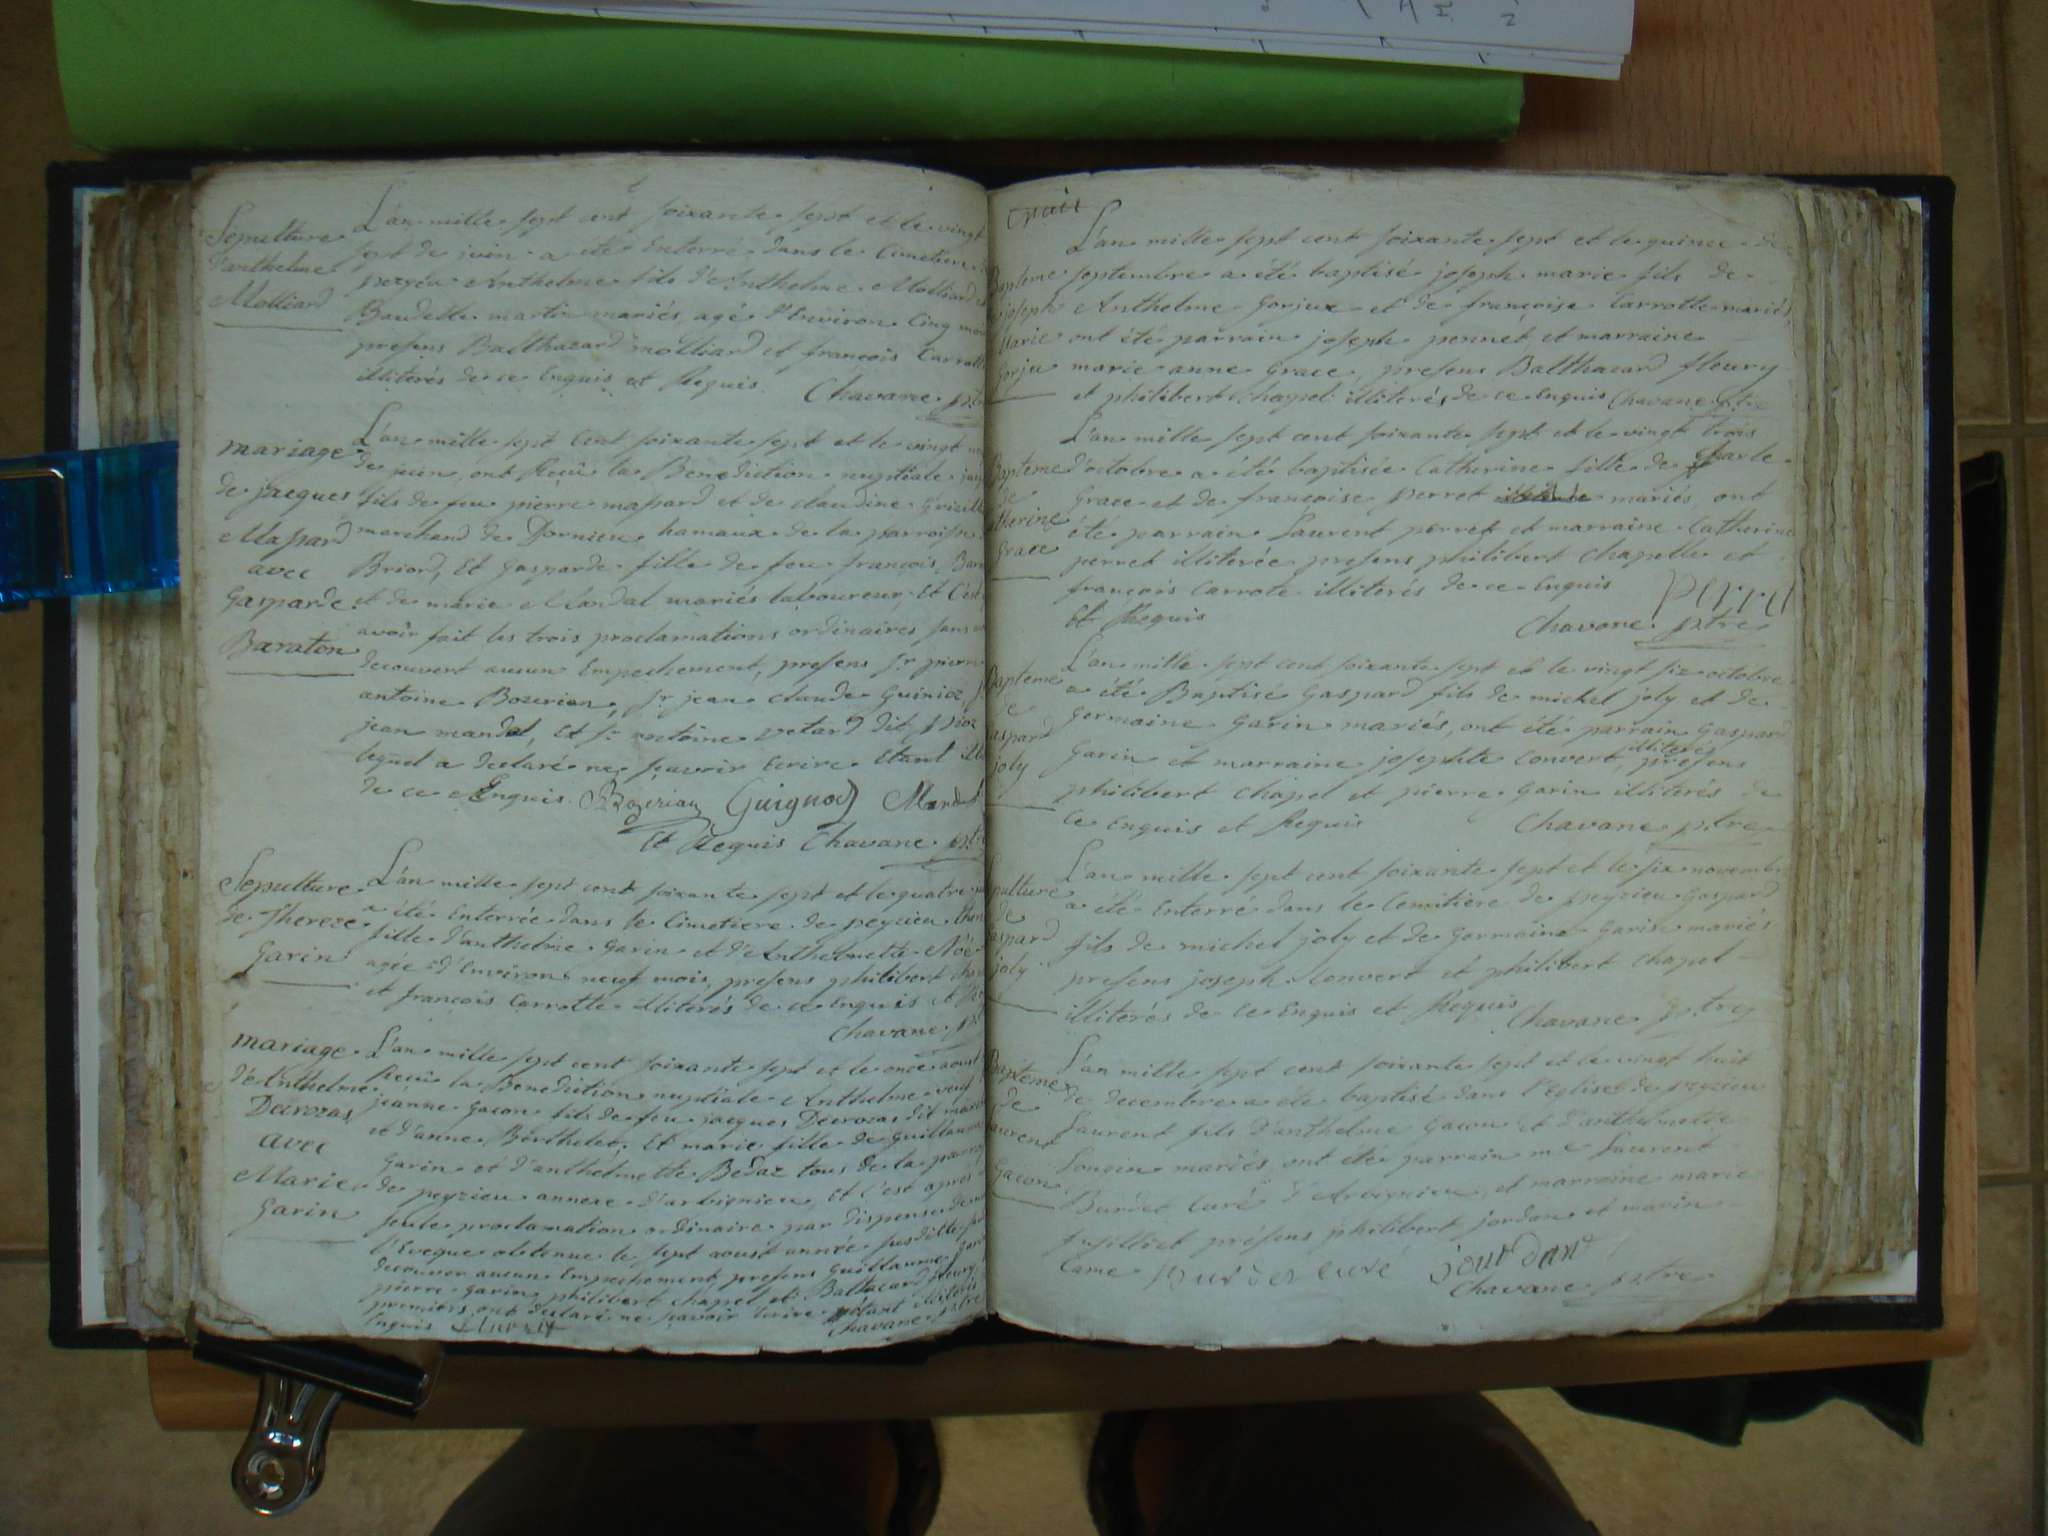 Sepulture
d'anthelme
Molliard
L'an mille sept cent soixante sept et le vingt
sept de juin a été Enterré dans le Cimetiere
peyzieu Anthelme fils d'Anthelme Molliard
Baudette martin mariés, agé d'Environ Cinq
presens Balthazard molliard et françois Carrotte
illiterés de ce Enquis et Requis. Chavane ptre
mariage
de jacques
Massard
avec
Gasparde
Baraton
L'an mille sept Cent soixante sept et le vingt
de juin, ont Reçu la Benediction nuptiale
fils de feu pierre massard et de claudine
marchand de Dornieu hamaux de la parroisse
Briord, Et gasparde fille de feu françois
et de marie Mandal mariés laboureur, Et C'est
avoir fait les trois proclamations ordinaires sans
decouvert aucun Empechement, presens Sr pierre
antoine Bozerian, Sr jean claude Guinioz,
jean mandal, Et Sr antoine vetard dit
lequel a declaré ne sçavoir Ecrire Etant
de ce Enquis. Bozerian Guignod
Et Requis Chavane ptre
Sepulture
de Thereze
Garin
L'an mille sept cent soixante sept et le quatre
a été Enterrée dans le Cimetiere de peyzieu
fille d'anthelme Garin et d'Anthelmette
agée d'Environ neuf mois, presens philibert
et françois Carrotte illiterés de ce Enquis et
Chavane
mariage
d'Anthelme
Decrozas
avec
Marie
Garin
L'an mille sept cent soixante sept et le onze aoust
Reçu la Benediction nuptiale Anthelme veuf
jeanne gacon fils de feu jacques Decrozas dit
et d'anne Berthelet, Et marie fille de Guillaume
Garin et d'anthelmette Bedaz tous de la
de peyzieu annexe d'arbignieu, Et c'est apres
seule proclamation ordinaire par dispense de
l'Eveque obtenue le sept aoust année susditte
decouver aucun Empechement, presens Guillaume
pierre Garin, philibert chapel et Balthazard fleury
premiers ont declaré ne sçavoir Ecrire Etant illiterés
Enquis Chavane ptre
L'an mille sept cent soixante sept et le quinze de
Bapteme septembre a été baptisé joseph marie fils de
joseph Anthelme Gorjux et de françoise Carrotte mariés
Marie ont été parrain joseph pennet et marraine
Gorju marie anne Grace, presens Balthazard fleury
et philibert Chapel illiterés de ce Enquis Chavane ptre
L'an mille sept cent soixante sept et le vingt trois
Bapteme d'octobre a été baptisée Catherine fille de Charle
de Grace et de françoise perret mariés, ont
Catherine été parrain Laurent perret et marraine Catherine
Grace perret illiterée presens philibert Chapelle et
françois Carrote illiterés de ce Enquis Perret
Et Requis Chavane ptre
L'an mille sept cent soixante sept et le vingt six octobre
Bapteme a été Baptisé Gaspard fils de michel joly et de
de germaine Garin mariés, ont été parrain Gaspard
Gaspard Garin et marraine josephte Convert, illiterés presens
joly philibert Chapel et pierre Garin illiterés de
Ce Enquis et Requis Chavane ptre
L'an mille sept cent soixante sept et le six novembre
Sepulture a été Enterré dans le Cemitière de peyzieu Gaspard
de fils de michel joly et de Germaine Garin mariés
Gaspard presens joseph Convert et philibert Chapel
joly illiterés de Ce Enquis et Requis Chavane ptre
L'an mille sept cent soixante sept et le vingt huit
Bapteme de decembre a été baptisé dans l'Eglise de peyzieu
de Laurent fils d'anthelme Gacon et d'anthelmette
Laurent Longin mariés, ont été parrain me Laurent
Gacon Burdet Curé d'Arbignieu, et marraine marie
présens philibert jordan et marin
Came Burdet curé jourdan
Chavane ptre